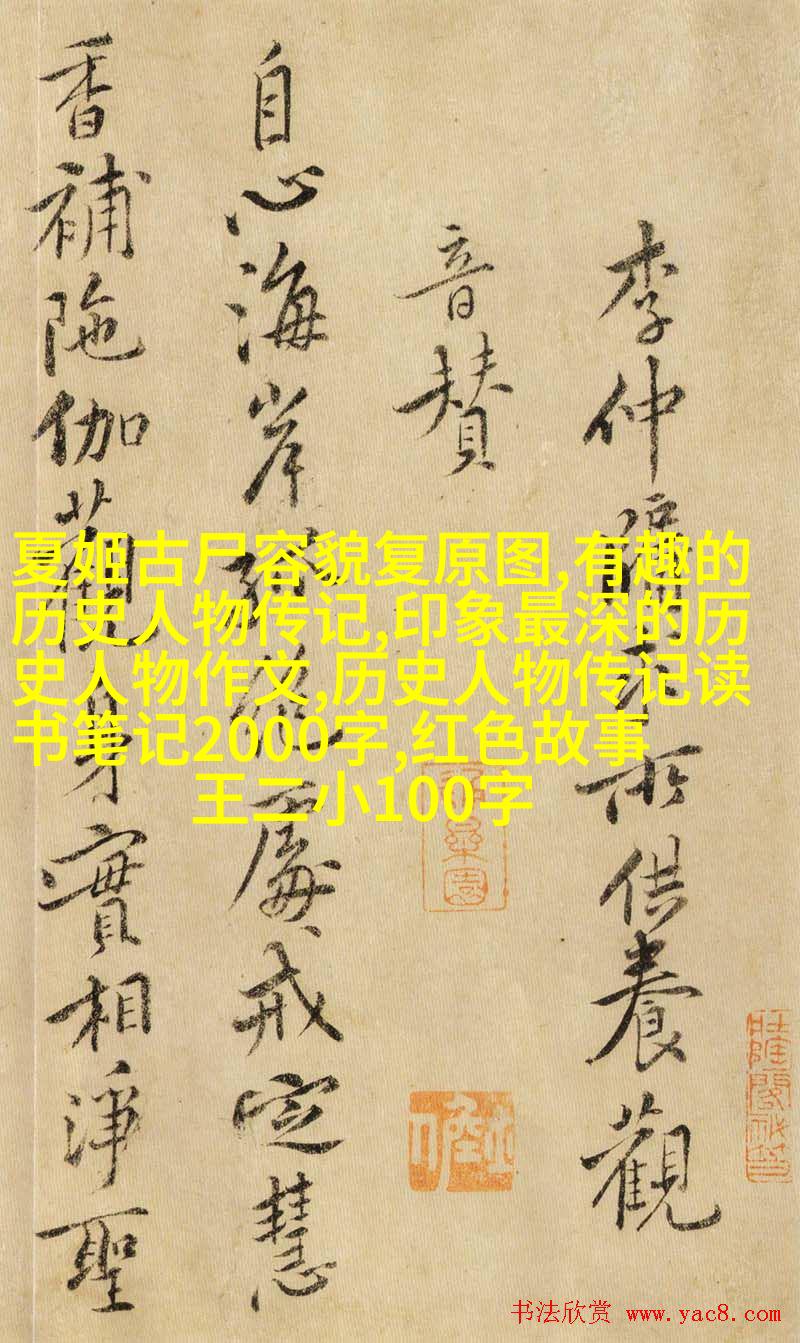 李仲𢍰□所供養觀
音赞
自心海岸 處戒定慧
香補陁伽觀身實相淨聖
夏姬古尸容貌复原图,有趣的
历史人物传记,印象最深的历
史人物作文,历史人物传记读
书笔记2000字,红色故事
王二小100字
书法欣赏 www.yac8.com